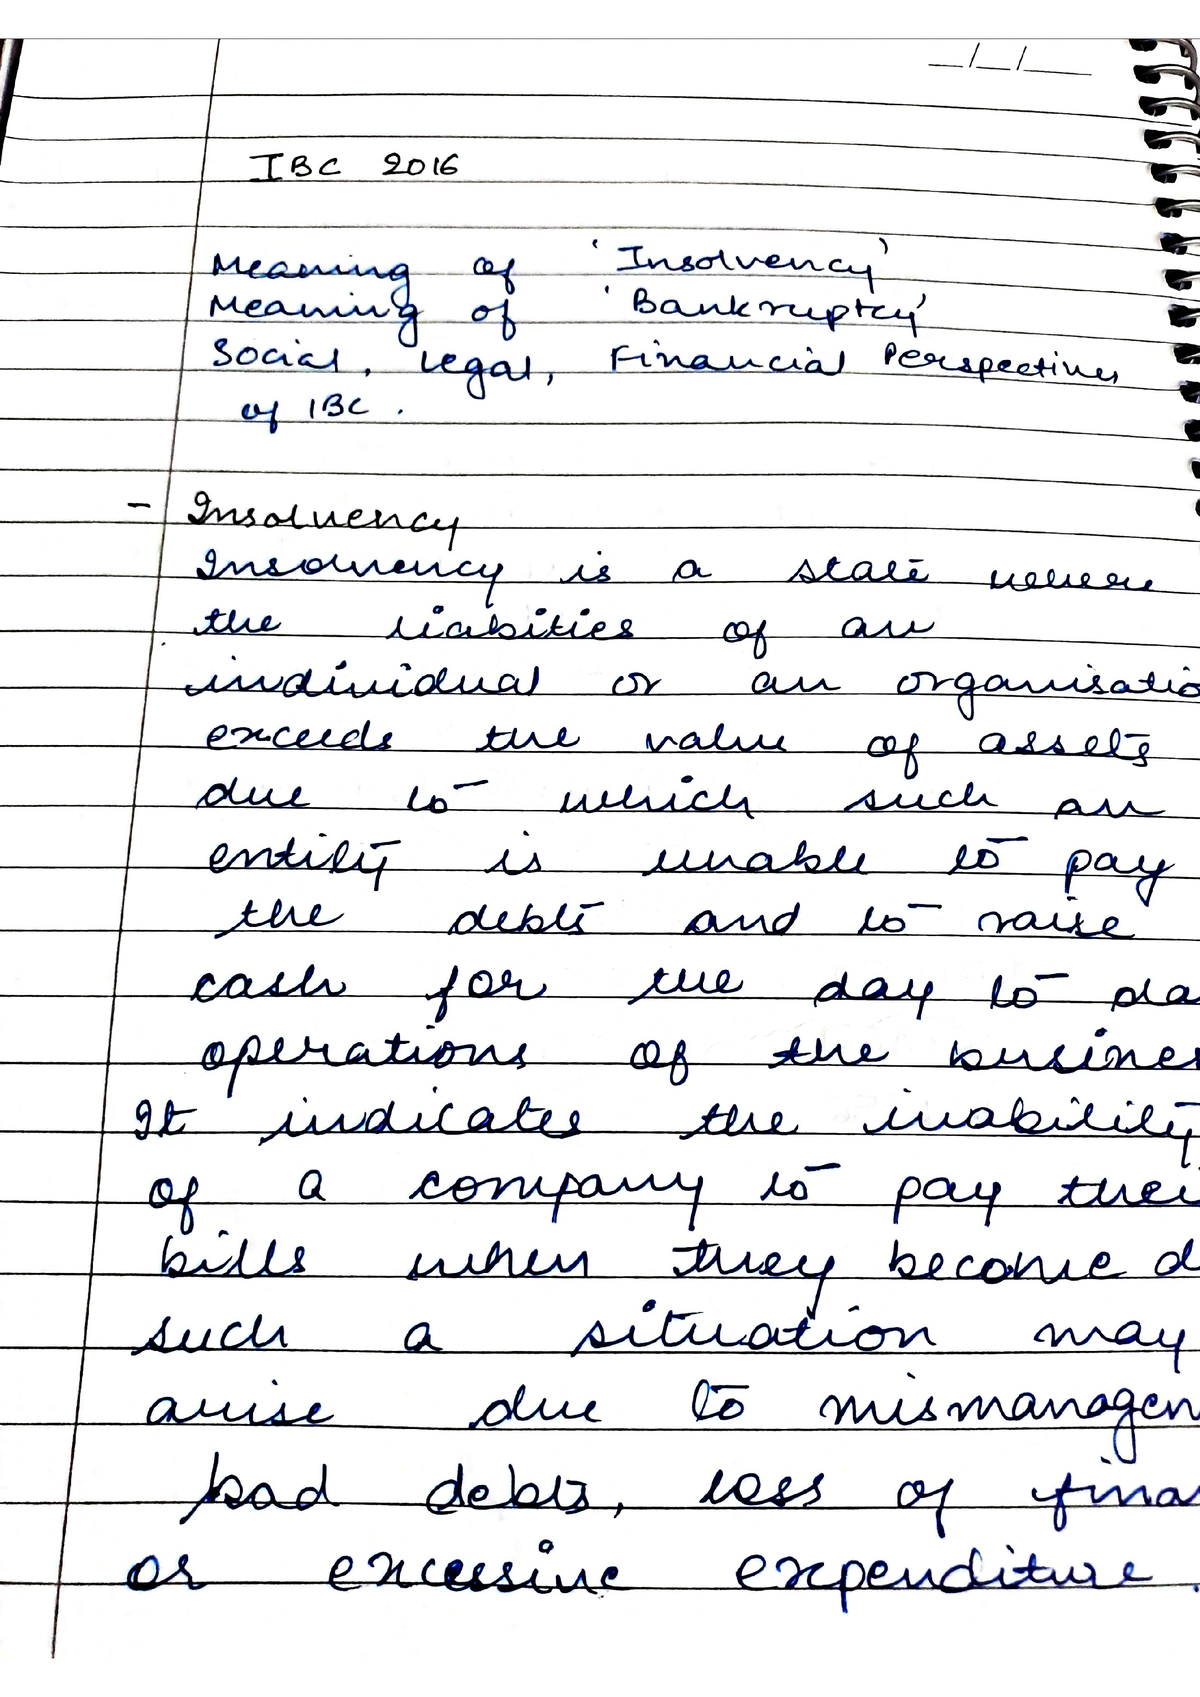 IBC 2016
Meaning of 'Insolvency'
Meaning of 'Bankruptcy'
Social, Legal, Financial Perspectives
of IBC.
- Insolvency
Insolvency is a state where
the liabities of an
individual or an organisatio
exceeds the value of assets
due to which such an
entity is unable to pay
the debts and to raise
cash for the day to da
operations of the busines
It indicates the inability
of a company to pay thei
bills when they become d
such a situation may
arise due to mismanagem
bad debts, loss of finan
or excessive expenditure.